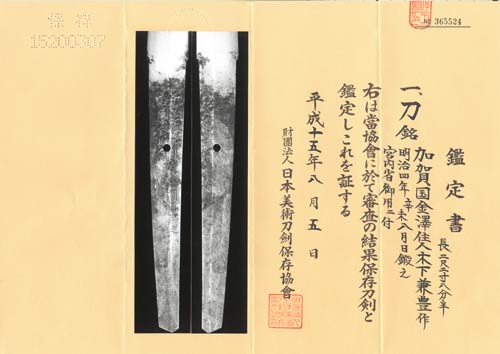 保存
15200307
№ 365524
鑑定書
一、刀 銘 加賀国金澤住人木下兼豊作
明治四年辛未八月日鍛之
宮内省御用ニ付
長 二尺二寸八分半
右は當協會に於て審査の結果保存刀剣と
鑑定しこれを証する
平成十五年八月五日
財團法人 日本美術刀劍保存協會